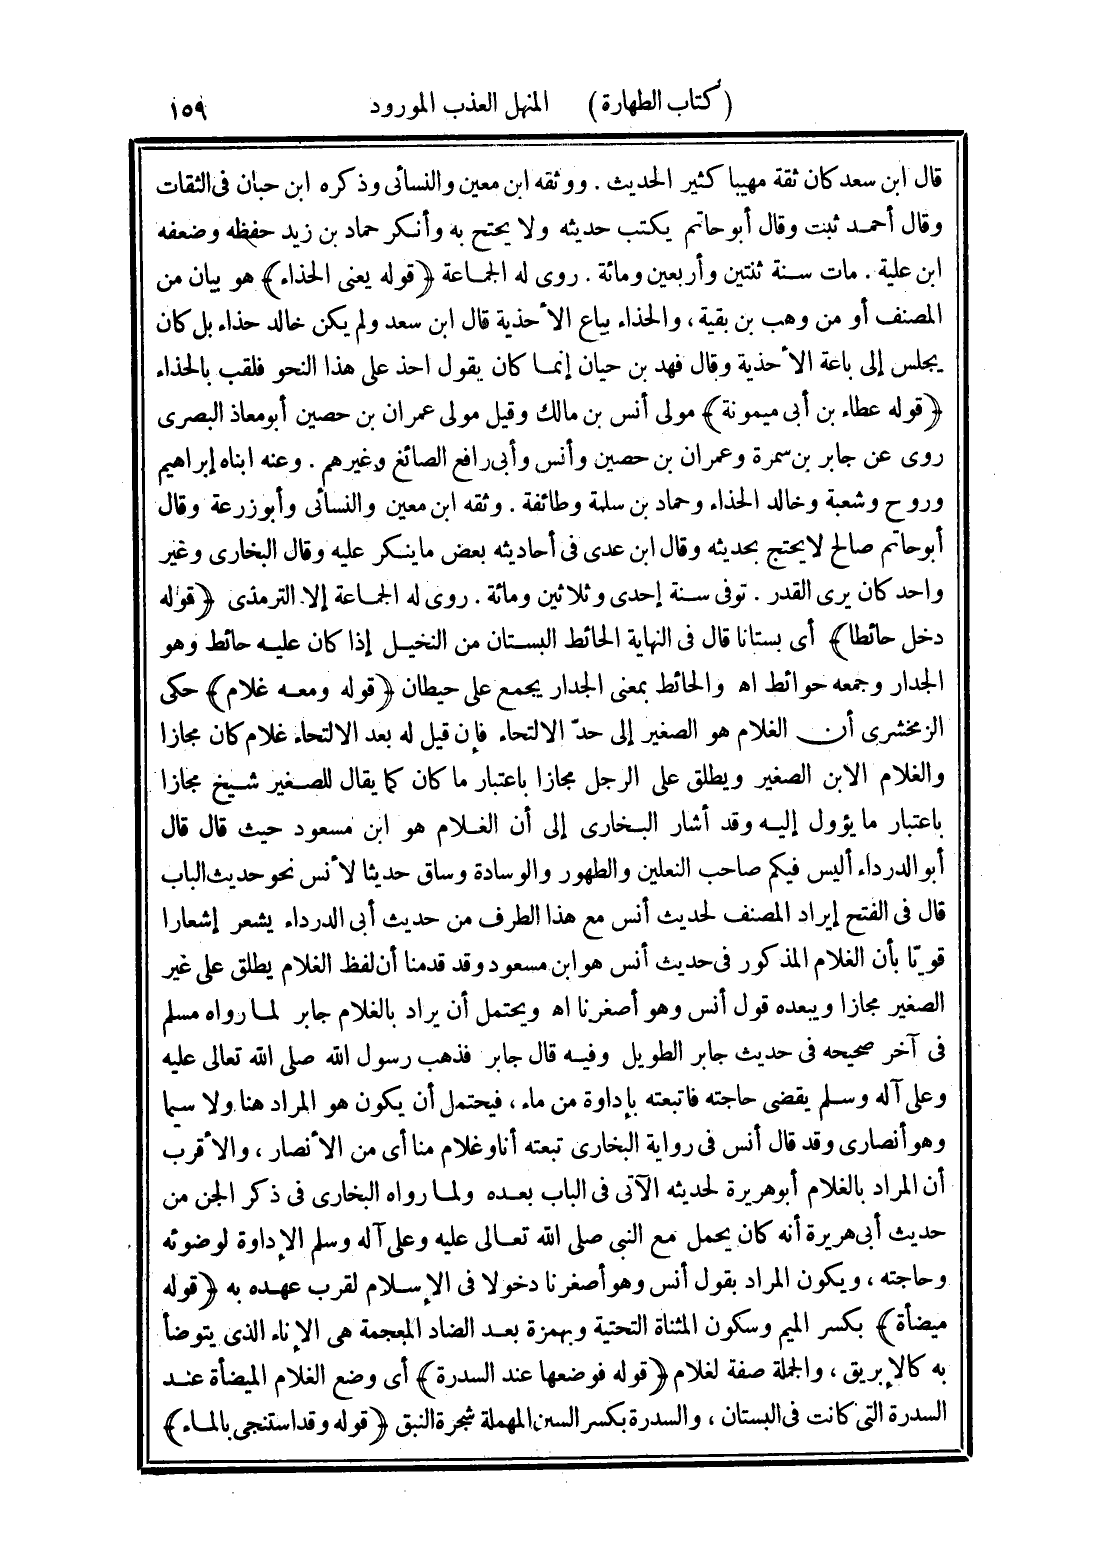 (كتاب الطهارة) المنهل العذب المورود ١٥٩
قال ابن سعد كان ثقة مهيبا كثير الحديث. ووثقه ابن معين والنسائى وذكره ابن حبان فى الثقات
وقال أحمد ثبت وقال أبو حاتم يكتب حديثه ولا يحتج به وأنكر حماد بن زيد حفظه وضعفه
ابن علية. مات سنة ثنتين وأربعين ومائة. روى له الجماعة ﴿قوله يعنى الحذاء﴾ هو بيان من
المصنف أو من وهب بن بقية، والحذاء بياع الأحذية قال ابن سعد ولم يكن خالد حذاء بل كان
يجلس إلى باعة الأحذية وقال فهد بن حيان إنما كان يقول احذ على هذا النحو فلقب بالحذاء
﴿قوله عطاء بن أبى ميمونة﴾ مولى أنس بن مالك وقيل مولى عمران بن حصين أبو معاذ البصرى
روى عن جابر بن سمرة وعمران بن حصين وأنس وأبى رافع الصائغ وغيرهم. وعنه ابناه إبراهيم
وروح وشعبة وخالد الحذاء وحماد بن سلمة وطائفة. وثقه ابن معين والنسائى وأبو زرعة وقال
أبو حاتم صالح لا يحتج بحديثه وقال ابن عدى فى أحاديثه بعض ما ينكر عليه وقال البخارى وغير
واحد كان يرى القدر. توفى سنة إحدى وثلاثين ومائة. روى له الجماعة إلا الترمذى ﴿قوله
دخل حائطا﴾ أى بستانا قال فى النهاية الحائط البستان من النخيل إذا كان عليه حائط وهو
الجدار وجمعه حوائط اه والحائط بمعنى الجدار يجمع على حيطان ﴿قوله ومعه غلام﴾ حكى
الزمخشرى أن الغلام هو الصغير إلى حدّ الالتحاء فإن قيل له بعد الالتحاء غلام كان مجازا
والغلام الابن الصغير ويطلق على الرجل مجازا باعتبار ما كان كما يقال للصغير شيخ مجازا
باعتبار ما يؤول إليه وقد أشار البخارى إلى أن الغلام هو ابن مسعود حيث قال قال
أبو الدرداء أليس فيكم صاحب النعلين والطهور والوسادة وساق حديثا لأنس نحو حديث الباب
قال فى الفتح إيراد المصنف لحديث أنس مع هذا الطرف من حديث أبى الدرداء يشعر إشعارا
قويّا بأن الغلام المذكور فى حديث أنس هو ابن مسعود وقد قدمنا أن لفظ الغلام يطلق على غير
الصغير مجازا ويبعده قول أنس وهو أصغرنا اه ويحتمل أن يراد بالغلام جابر لما رواه مسلم
فى آخر صحيحه فى حديث جابر الطويل وفيه قال جابر فذهب رسول الله صلى الله تعالى عليه
وعلى آله وسلم يقضى حاجته فاتبعته بإداوة من ماء، فيحتمل أن يكون هو المراد هنا ولا سيما
وهو أنصارى وقد قال أنس فى رواية البخارى تبعته أنا وغلام منا أى من الأنصار، والأقرب
أن المراد بالغلام أبو هريرة لحديثه الآتى فى الباب بعده ولما رواه البخارى فى ذكر الجن من
حديث أبى هريرة أنه كان يحمل مع النبى صلى الله تعالى عليه وعلى آله وسلم الإداوة لوضوئه
وحاجته، ويكون المراد بقول أنس وهو أصغرنا دخولا فى الإسلام لقرب عهده به ﴿قوله
ميضأة﴾ بكسر الميم وسكون المثناة التحتية وبهمزة بعد الضاد المعجمة هى الإناء الذى يتوضأ
به كالإبريق، والجملة صفة لغلام ﴿قوله فوضعها عند السدرة﴾ أى وضع الغلام الميضأة عند
السدرة التى كانت فى البستان، والسدرة بكسر السين المهملة شجرة النبق ﴿قوله وقد استنجى بالماء﴾